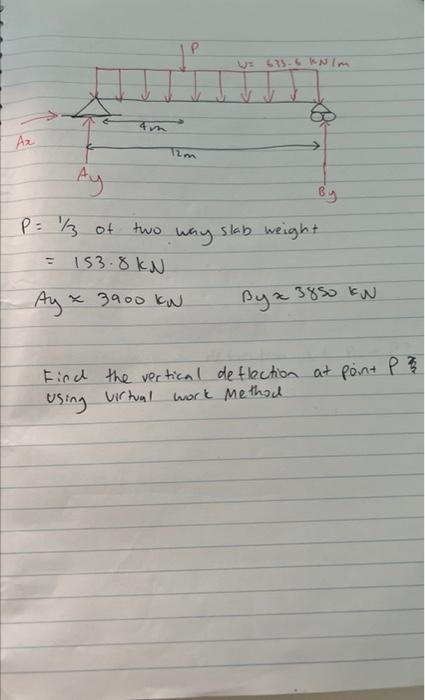 P
W= 633.6 kN/m
4m
Ax
12m
Ay
By
P= 1/3 of two way slab weight
= 153.8 kN
Ay ≈ 3900 kN By ≈ 3850 kN
Find the vertical deflection at point P
using virtual work Method